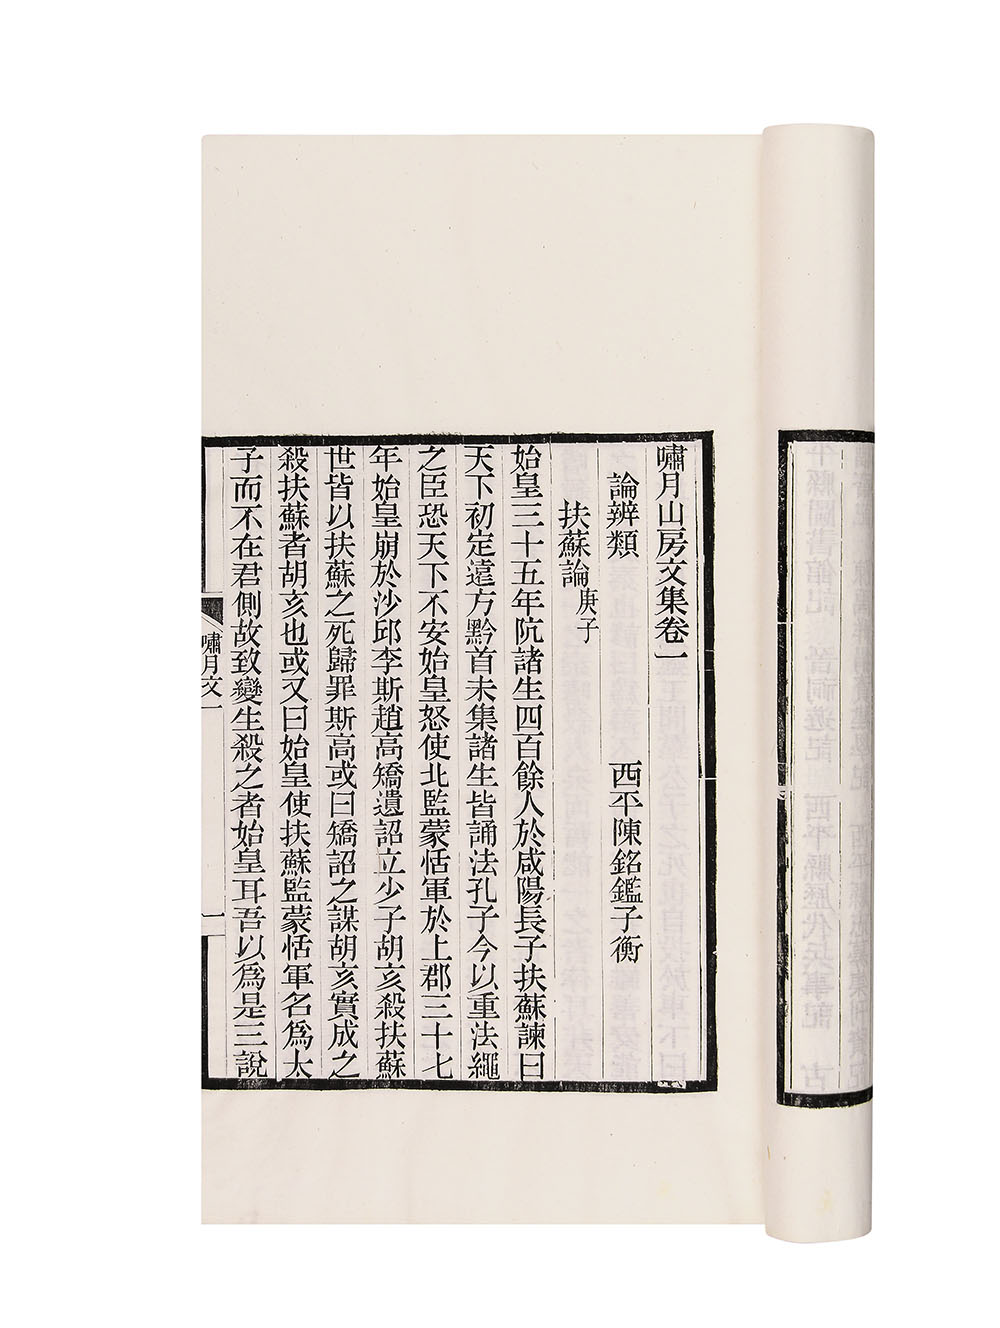 嘯月山房文集卷一
論辨類　西平陳銘鑑子衡
扶蘇論庚子
始皇三十五年阬諸生四百餘人於咸陽長子扶蘇諫曰
天下初定遠方黔首未集諸生皆誦法孔子今以重法繩
之臣恐天下不安始皇怒使北監蒙恬軍於上郡三十七
年始皇崩於沙邱李斯趙高矯遺詔立少子胡亥殺扶蘇
世皆以扶蘇之死歸罪斯高或曰矯詔之謀胡亥實成之
殺扶蘇者胡亥也或又曰始皇使扶蘇監蒙恬軍名爲太
子而不在君側故致變生殺之者始皇耳吾以爲是三說
嘯月文一
一